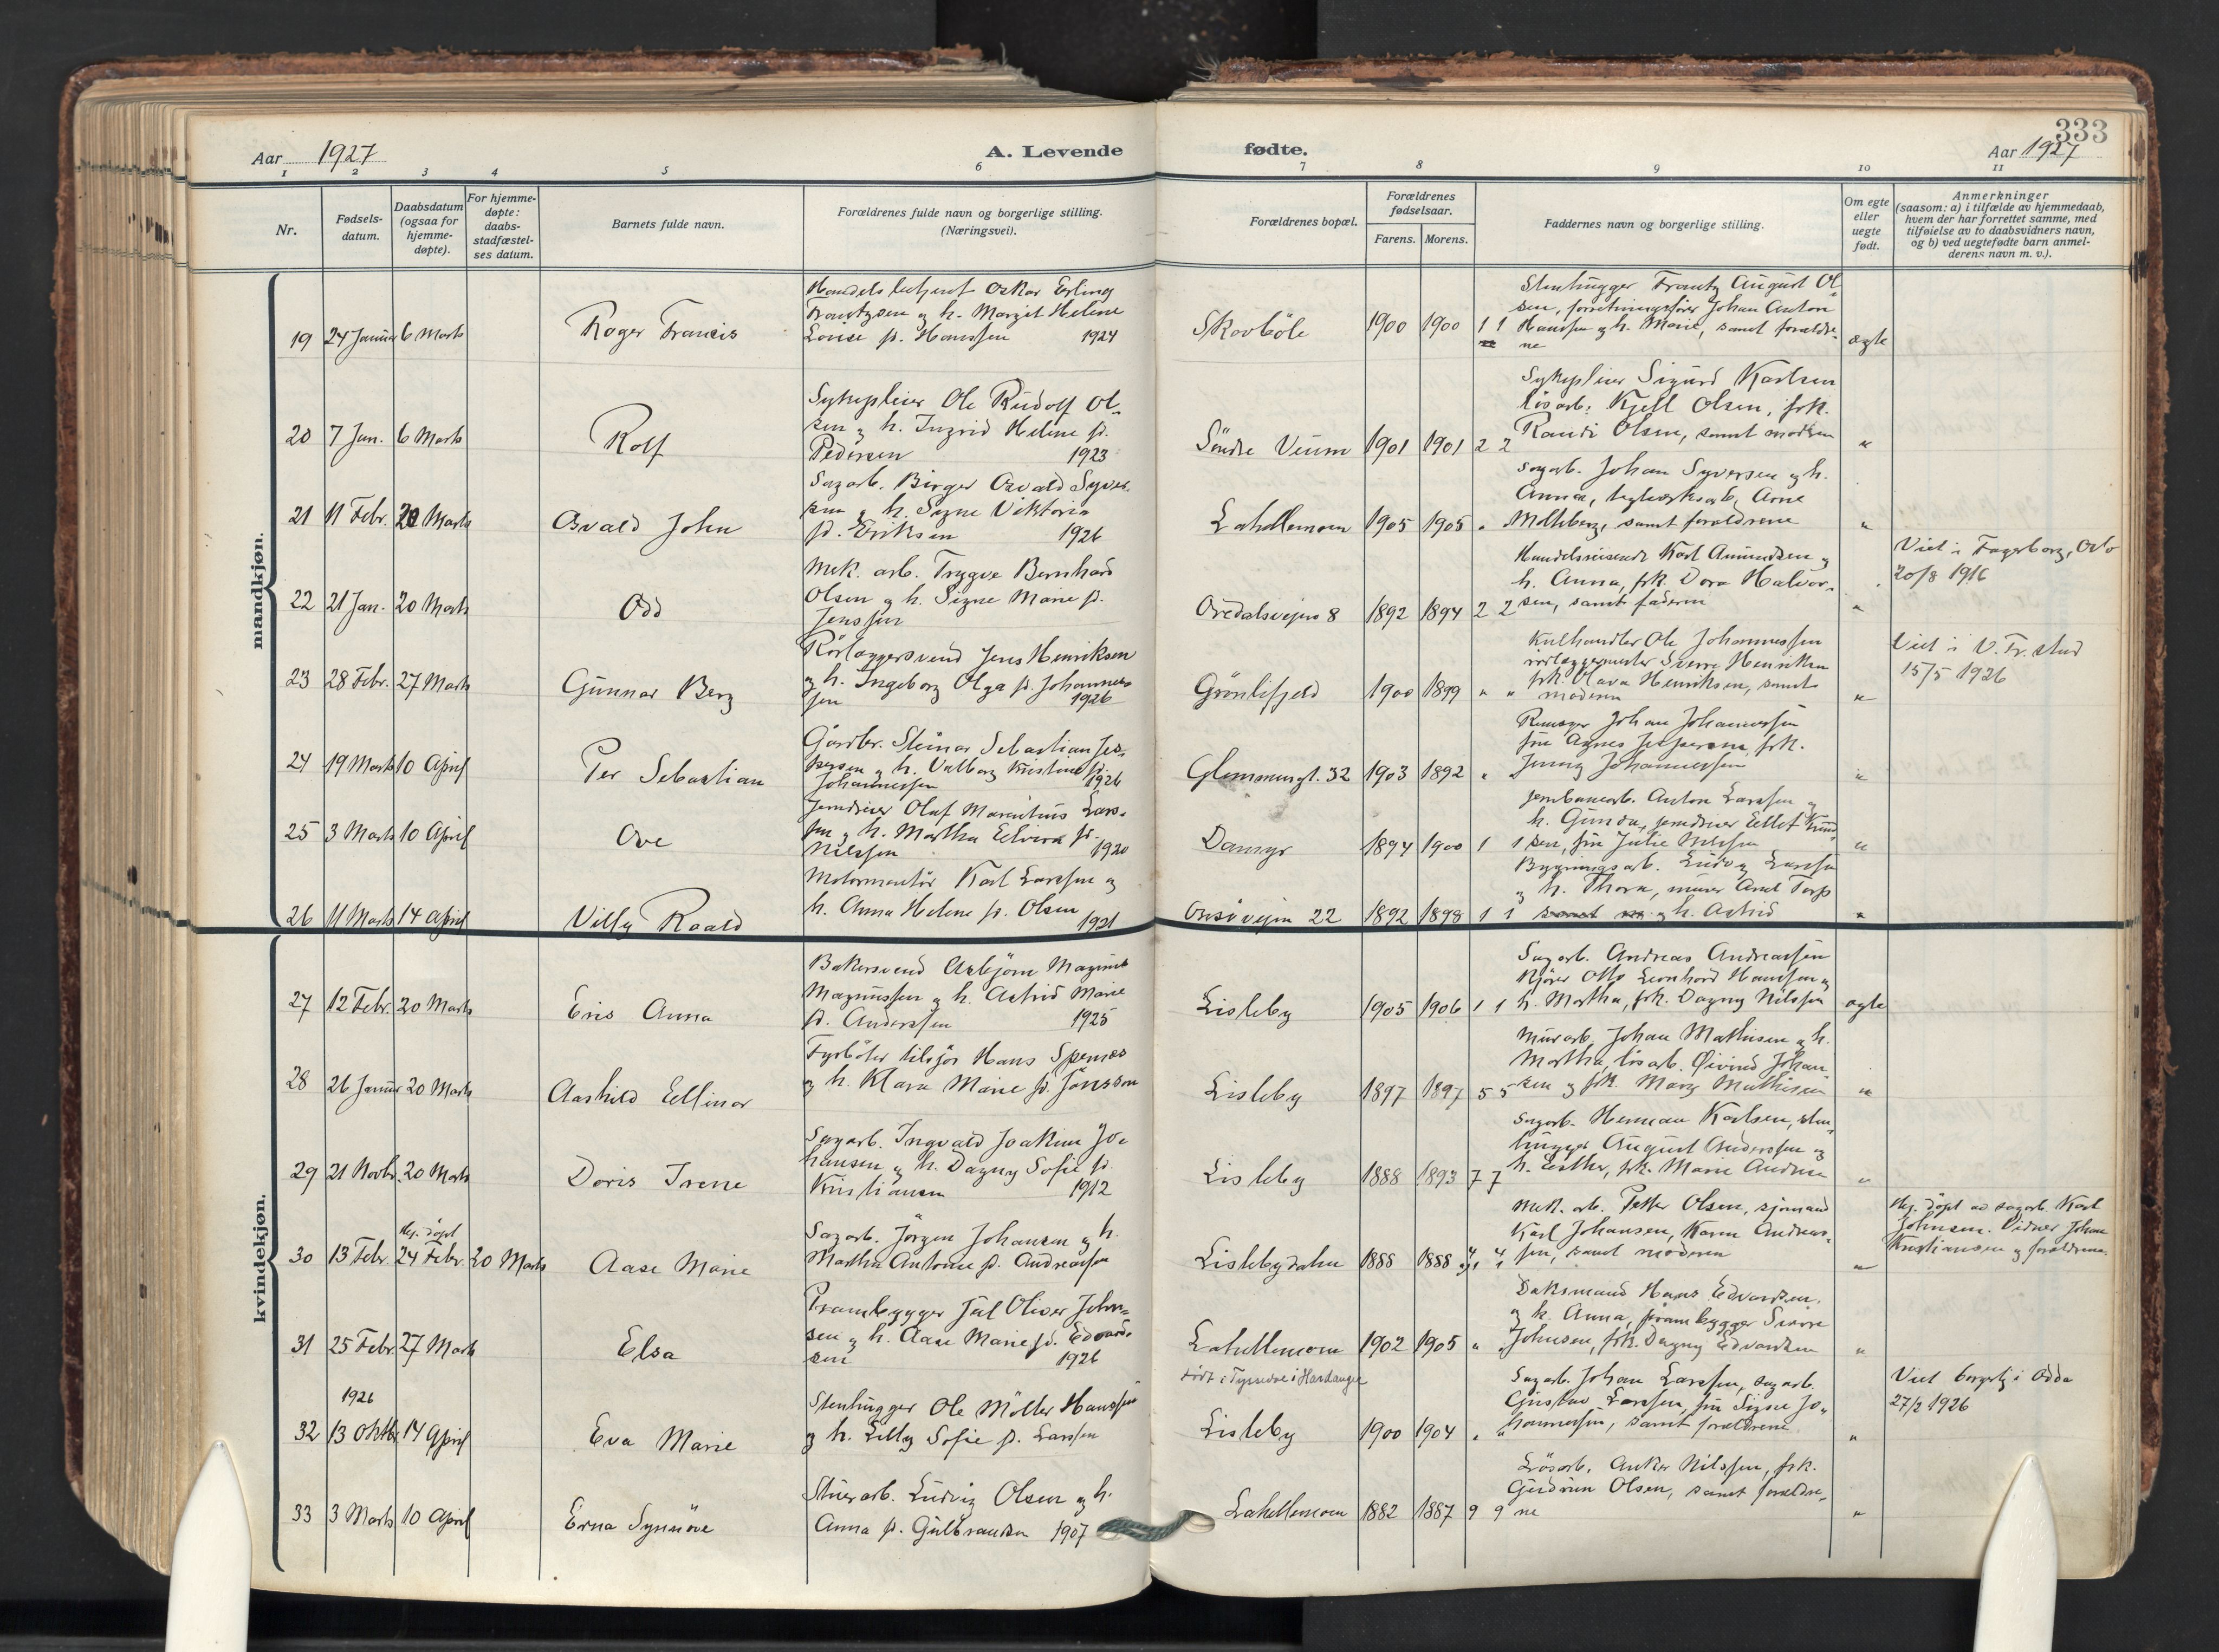 333
Aar 1927
A. Levende
fødte.
Aar 1927
1 2 3 4 5 6 7 8 9 10 11
Nr.
Fødsels-
datum.
Daabsdatum
(ogsaa for
hjemme-
døpte).
For hjemme-
døpte:
daabs-
stadfæstel-
ses datum.
Barnets fulde navn.
Forældrenes fulde navn og borgerlige stilling.
(Næringsvei).
Forældrenes bopæl.
Forældrenes
fødselsaar.
Farens. Morens.
Faddernes navn og borgerlige stilling.
Om egte
eller
uegte
født.
Anmerkninger
(saasom: a) i tilfælde av hjemmedaab,
hvem der har forrettet samme, med
tilføielse av to daabsvidners navn,
og b) ved uegtefødte barn anmel-
derens navn m. v.).
mandkjøn.
19 24 Januar 6 Marts
Roger Francis
Oskar Erling
Frantzsen og h. Margit Helene
Louise f. Hanssen 1924
Skovbøle 1900 1900 1 1
Stenhugger Frantz August Ol
sen, forretningsfører Johan Anton
Hanssen og h. Marie, samt forældre-
ne
ægte
20 7 Jan. 6 Marts
Rolf
Sykepleier Ole Rudolf Ol-
sen og h. Ingrid Helene f.
Pedersen 1923
Søndre Veum 1901 1901 2 2
Sykepleier Sigurd Karlsen
løsarb. Kjell Olsen, frk.
Randi Olsen, samt moderen
"
21 11 Febr. 20 Marts
Osvald John
Sagarb. Birger Osvald Syver-
sen og h. Signe Viktoria
f. Eriksen 1926
Lahellemoen 1905 1905 "
Sagarb. Johan Syversen og h.
Anna, teglverksarb. Arne
Molteberg, samt forældrene
"
22 21 Jan. 20 Marts
Odd
Mek. arb. Trygve Bernhard
Olsen og h. Signe Marie f.
Jenssen
Oredalsvejen 8 1892 1894 2 2
Handelsreisende Karl Amundsen og
h. Anna, frk. Dora Halvor-
sen, samt faderen
"
Viet i Fagerborg, Oslo
20/8 1916
23 28 Febr. 27 Marts
Gunnar Berg
Rørlæggersvend Jens Henriksen
og h. Ingeborg Olga f. Johannes
sen 1926
Grønlifjeld 1900 1899 " "
Kulhandler Ole Johannessen
rørlæggermester Sverre Henriksen
frk. Olava Henriksen, samt
moderen
"
Viet i V. Fr.stad
15/5 1926
24 19 Marts 10 April
Per Sebastian
Gårdbr. Steinar Sebastian Jes-
persen og h. Valborg Kristine f.
Johannessen 1926
Glemmengt. 32 1903 1892 "
Johan Johannessen
fru Agnes Jespersen, frk.
Jenny Johannessen
"
25 3 Marts 10 April
Ove
Jerndreier Olaf Marentius Lars-
sen og h. Martha Elvira f.
Nilssen 1920
Damyr 1894 1900 1 1
Jernbanearb. Anton Larssen og
h. Gunda, jerndreier Ellef Knud
sen, fru Julie Nilssen
"
26 11 Marts 14 April
Villy Roald
Motormontør Karl Larssen og
h. Anna Helene f. Olsen
1921
Onsøvejen 22 1892 1898 1 1
Bygningsarb. Ludvig Larssen
og h. Thora, murer Axel Torp
og h. Astrid
"
kvindekjøn.
27 12 Febr. 20 Marts
Eris Anna
Bakersvend Asbjørn Magnus
Magnussen og h. Astrid Marie
f. Anderssen 1925
Lisleby 1905 1906 1 1
Sagarb. Andreas Andreassen
Kjører Otto Leonhard Hanssen og
h. Martha, frk. Dagny Nilssen
ægte
28 26 Januar 20 Marts
Aashild Ellinor
Fyrbøter tilsjøs Hans Spernes
og h. Klara Marie f. Jonsson
Lisleby 1897 1897 5 5
Murarb. Johan Mathisen og h.
Martha, løsarb. Øivind Johan
sen og frk. Mary Mathisen
"
29 21 Novbr. 20 Marts
Doris Irene
Sagarb. Ingvald Joakim Jo-
hansen og h. Dagny Sofie f.
Kristiansen 1912
Lisleby 1888 1893 7 7
Sagarb. Herman Karlsen, sten
hugger August Anderssen og
h. Esther, frk. Marie Andersen
"
30 13 Febr. Hj. døpt 24 Febr. 20 Marts
Aase Marie
Sagarb. Jørgen Johansen og h.
Martha Antonie f. Andreassen
Lislebydalen 1888 1888
Mek. arb. Petter Olsen, sjømand
Karl Johansen, Karen Andreas-
sen, samt moderen
"
Hj. døpt av sagarb. Karl
Johnsen. Vidner Johan
Kristiansen og forældrene.
31 25 Febr. 27 Marts
Elsa
Prambygger Jul Oliver John-
sen og h. Aase Marie f. Edvard-
sen 1926
Lahellemoen 1902 1905 " "
Daksmand Hans Edvardsen
og h. Anna, prambygger Sverre
Johnsen, frk. Dagny Edvardsen
"
32 1926 13 Oktbr. 14 April
Eva Marie
Stenhugger Ole Møller Hanssen
og h. Lilly Sofie f. Larssen
Født i Tyssedal i Hardanger
Lisleby 1900 1904 " "
Sagarb. Johan Larssen, sagarb.
Gustav Larssen, fru Signe Jo-
hannessen, samt forældrene
"
Viet borgerlj i Odda
27/2 1926
33 3 Marts 10 April
Erna Synnøve
Stuerarb. Ludvig Olsen og h.
Anna f. Gulbrandsen 1907
Lahellemoen 1882 1887 9 9
Løsarb. Anker Nilssen, frk.
Gudrun Olsen, samt forældre-
ne
"